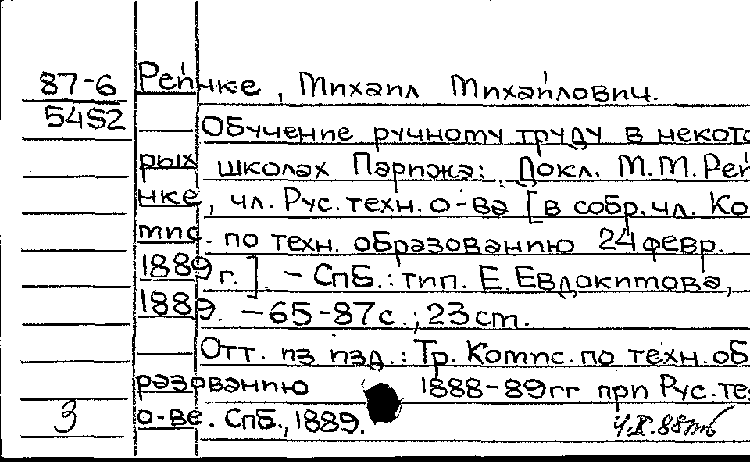 87-6 Рейнке, Михаил Михайлович.
5452 Обучение ручному труду в некото
рых школах Парижа: Докл. М.М. Рей
нке, чл. Рус. техн. о-ва [в собр. чл. Ко
мис. по техн. образованию 24 февр.
1889 г.]. - СПБ.: тип. Е. Евдокимова,
1889. - 65-87 с.; 23 cm.
Отт. из изд.: Тр. Комис. по техн. об
разованию 1888-89 гг при Рус. те
3 о-ве. СПБ., 1889.